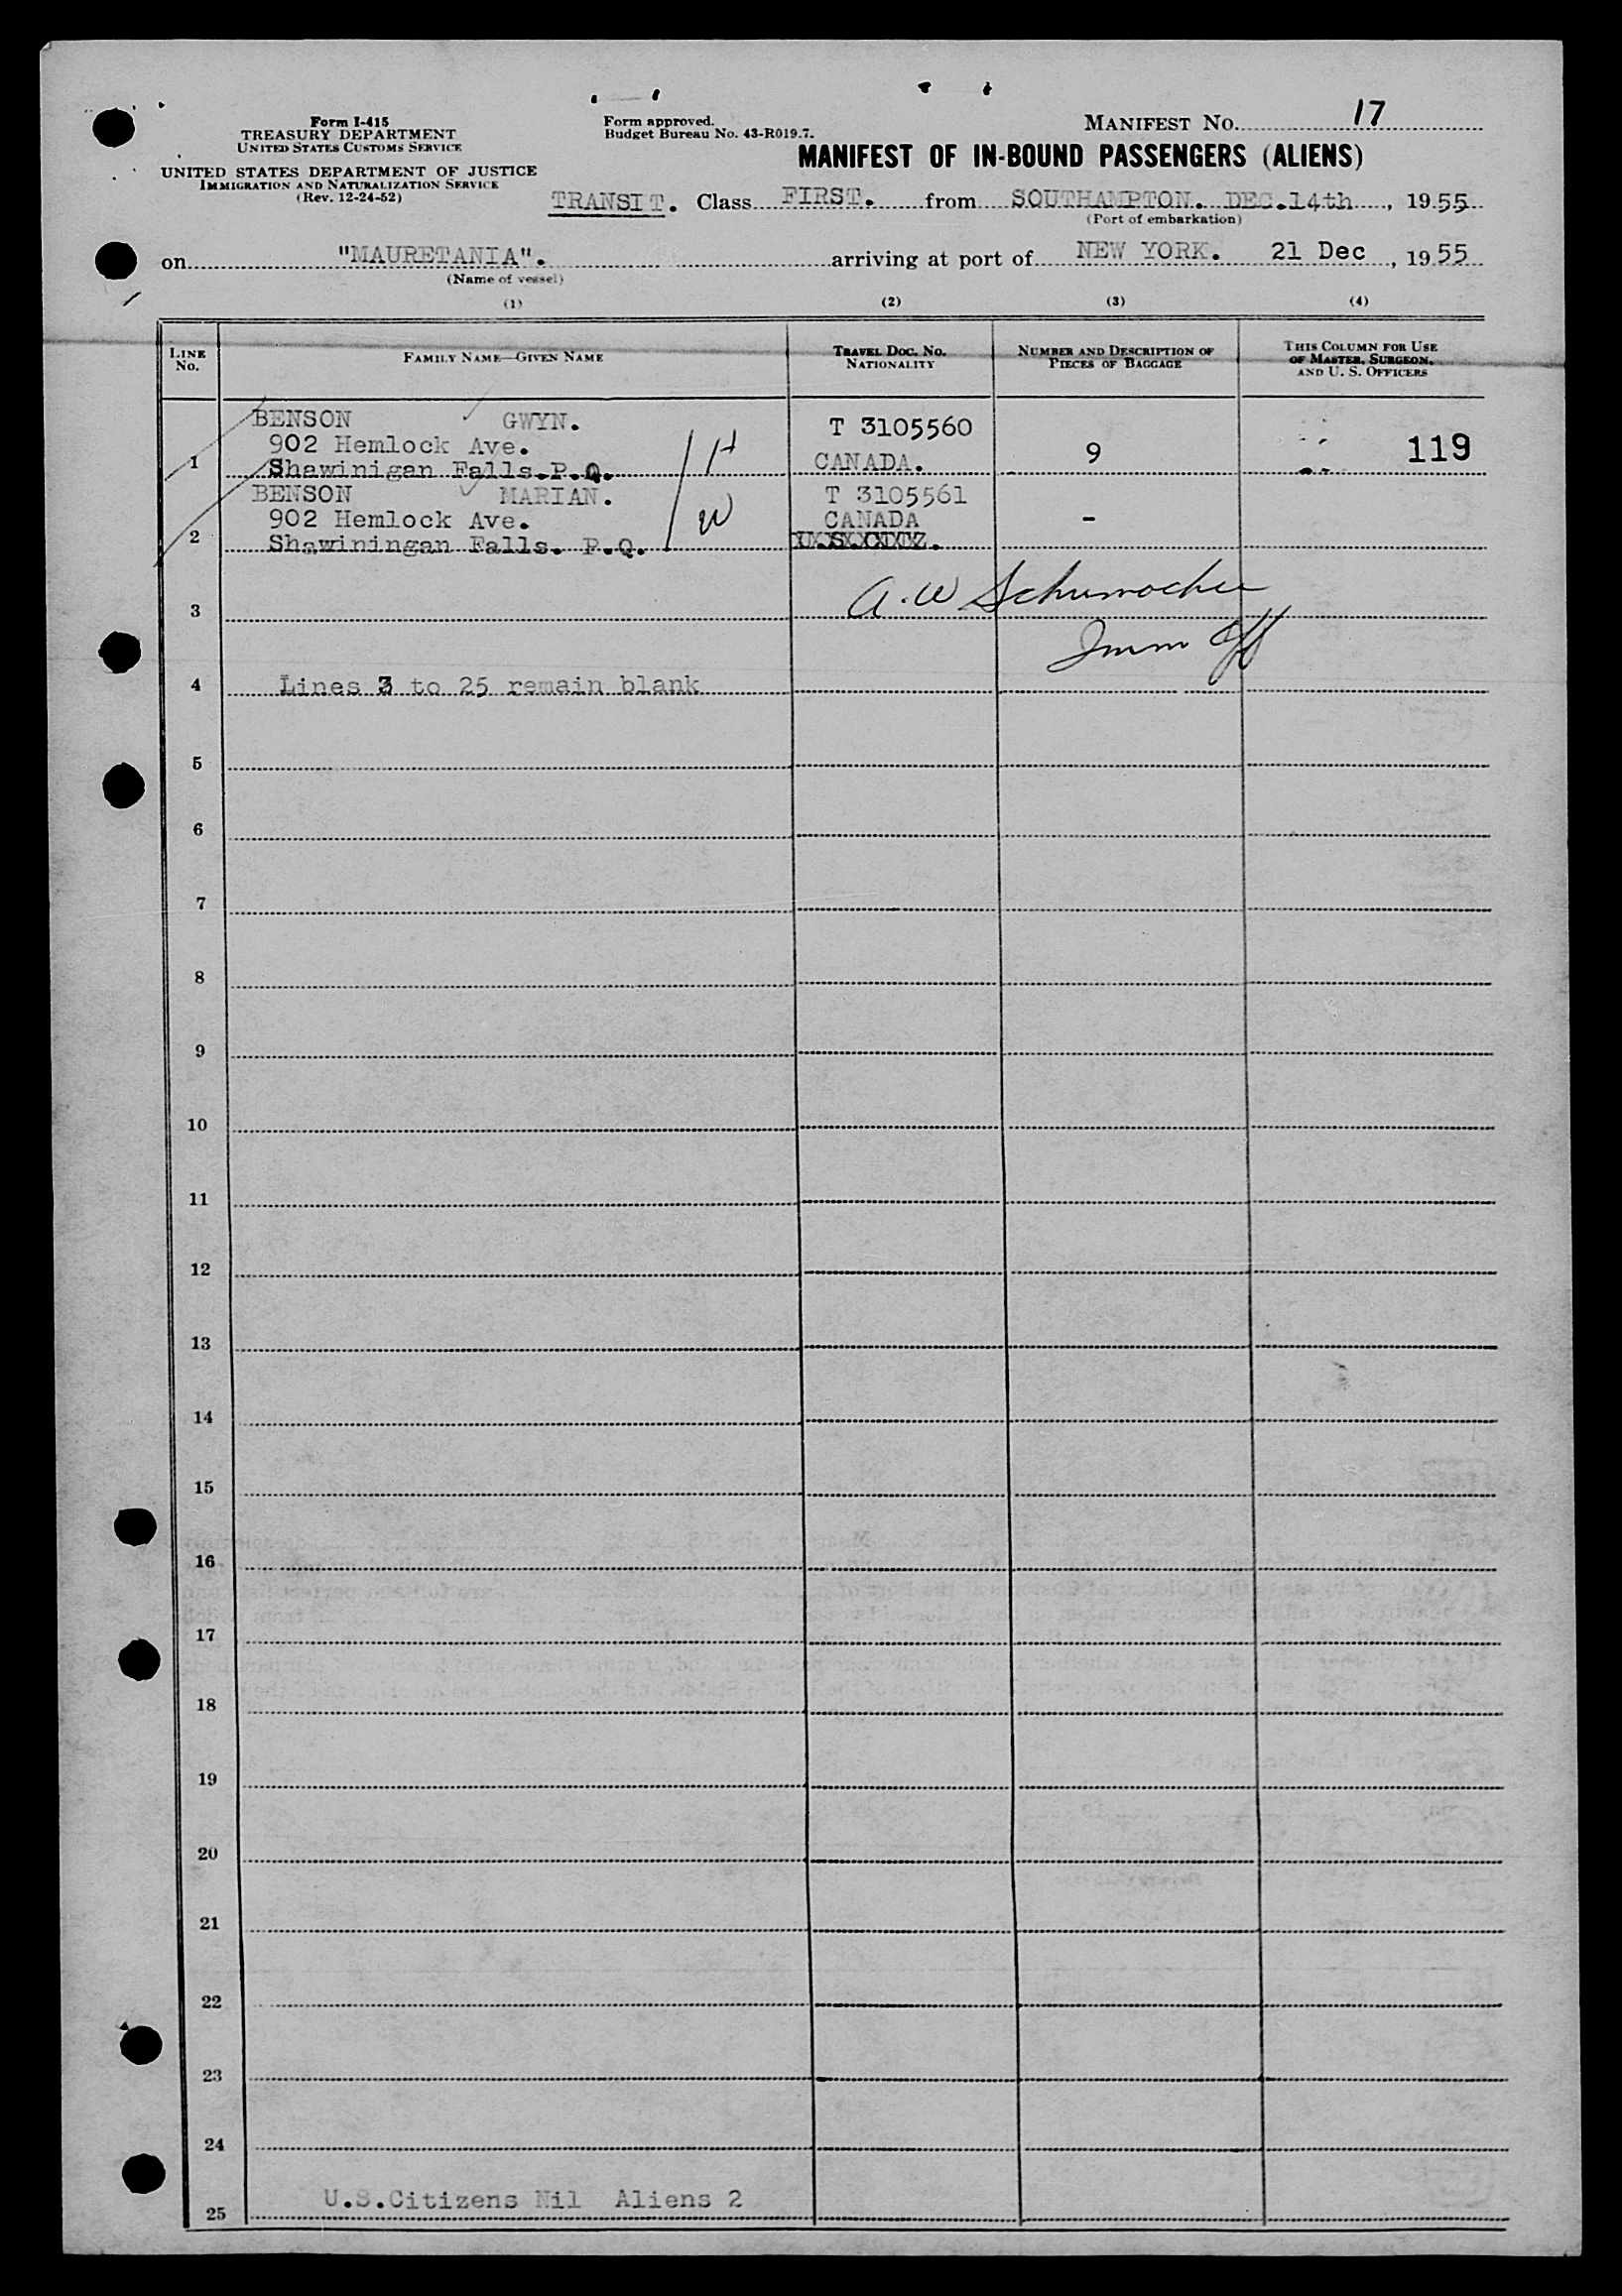 Form I-415
TREASURY DEPARTMENT
UNITED STATES CUSTOMS SERVICE
UNITED STATES DEPARTMENT OF JUSTICE
IMMIGRATION AND NATURALIZATION SERVICE
(Rev. 12-24-52)
Form approved.
Budget Bureau No. 43-R019.7.
MANIFEST NO. 17
MANIFEST OF IN-BOUND PASSENGERS (ALIENS)
TRANSIT. Class FIRST. from SOUTHAMPTON. DEC.14th, 1955
(Port of embarkation)
on "MAURETANIA". arriving at port of NEW YORK. 21 Dec, 1955
(Name of vessel)
(1) (2) (3) (4)
LINE No.
FAMILY NAME—GIVEN NAME
TRAVEL DOC. NO. NATIONALITY
NUMBER AND DESCRIPTION OF PIECES OF BAGGAGE
THIS COLUMN FOR USE OF MASTER, SURGEON, AND U. S. OFFICERS
BENSON GWYN. T 3105560
902 Hemlock Ave. H
1 Shawinigan Falls.P.Q. CANADA. 9 119
BENSON MARIAN. T 3105561
902 Hemlock Ave. W CANADA -
2 Shawiningan Falls. P.Q.
A.W Schumacher
3
Imm Off
4 Lines 3 to 25 remain blank
5
6
7
8
9
10
11
12
13
14
15
16
17
18
19
20
21
22
23
24
25 U.S.Citizens Nil Aliens 2